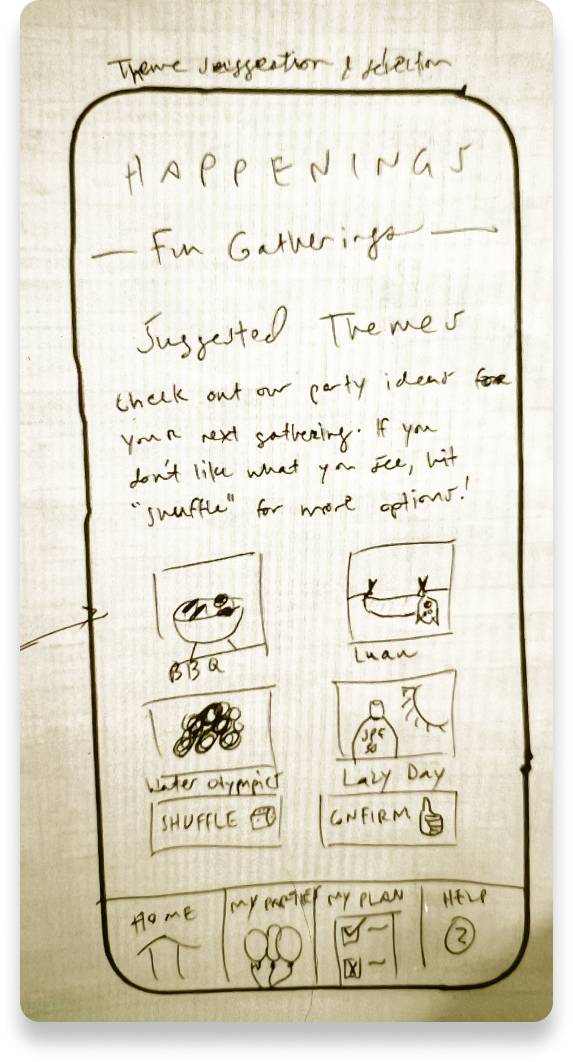 Theme suggestion & selection
HAPPENINGS
Fun Gatherings
Suggested Themes
Check out our party ideas for
your next gathering. If you
don't like what you see, hit
"shuffle" for more options!
BBQ
Luau
SPF
50
Water Olympics
Lazy Day
SHUFFLE
CONFIRM
HOME
MY PARTIES
MY PLAN
HELP
?